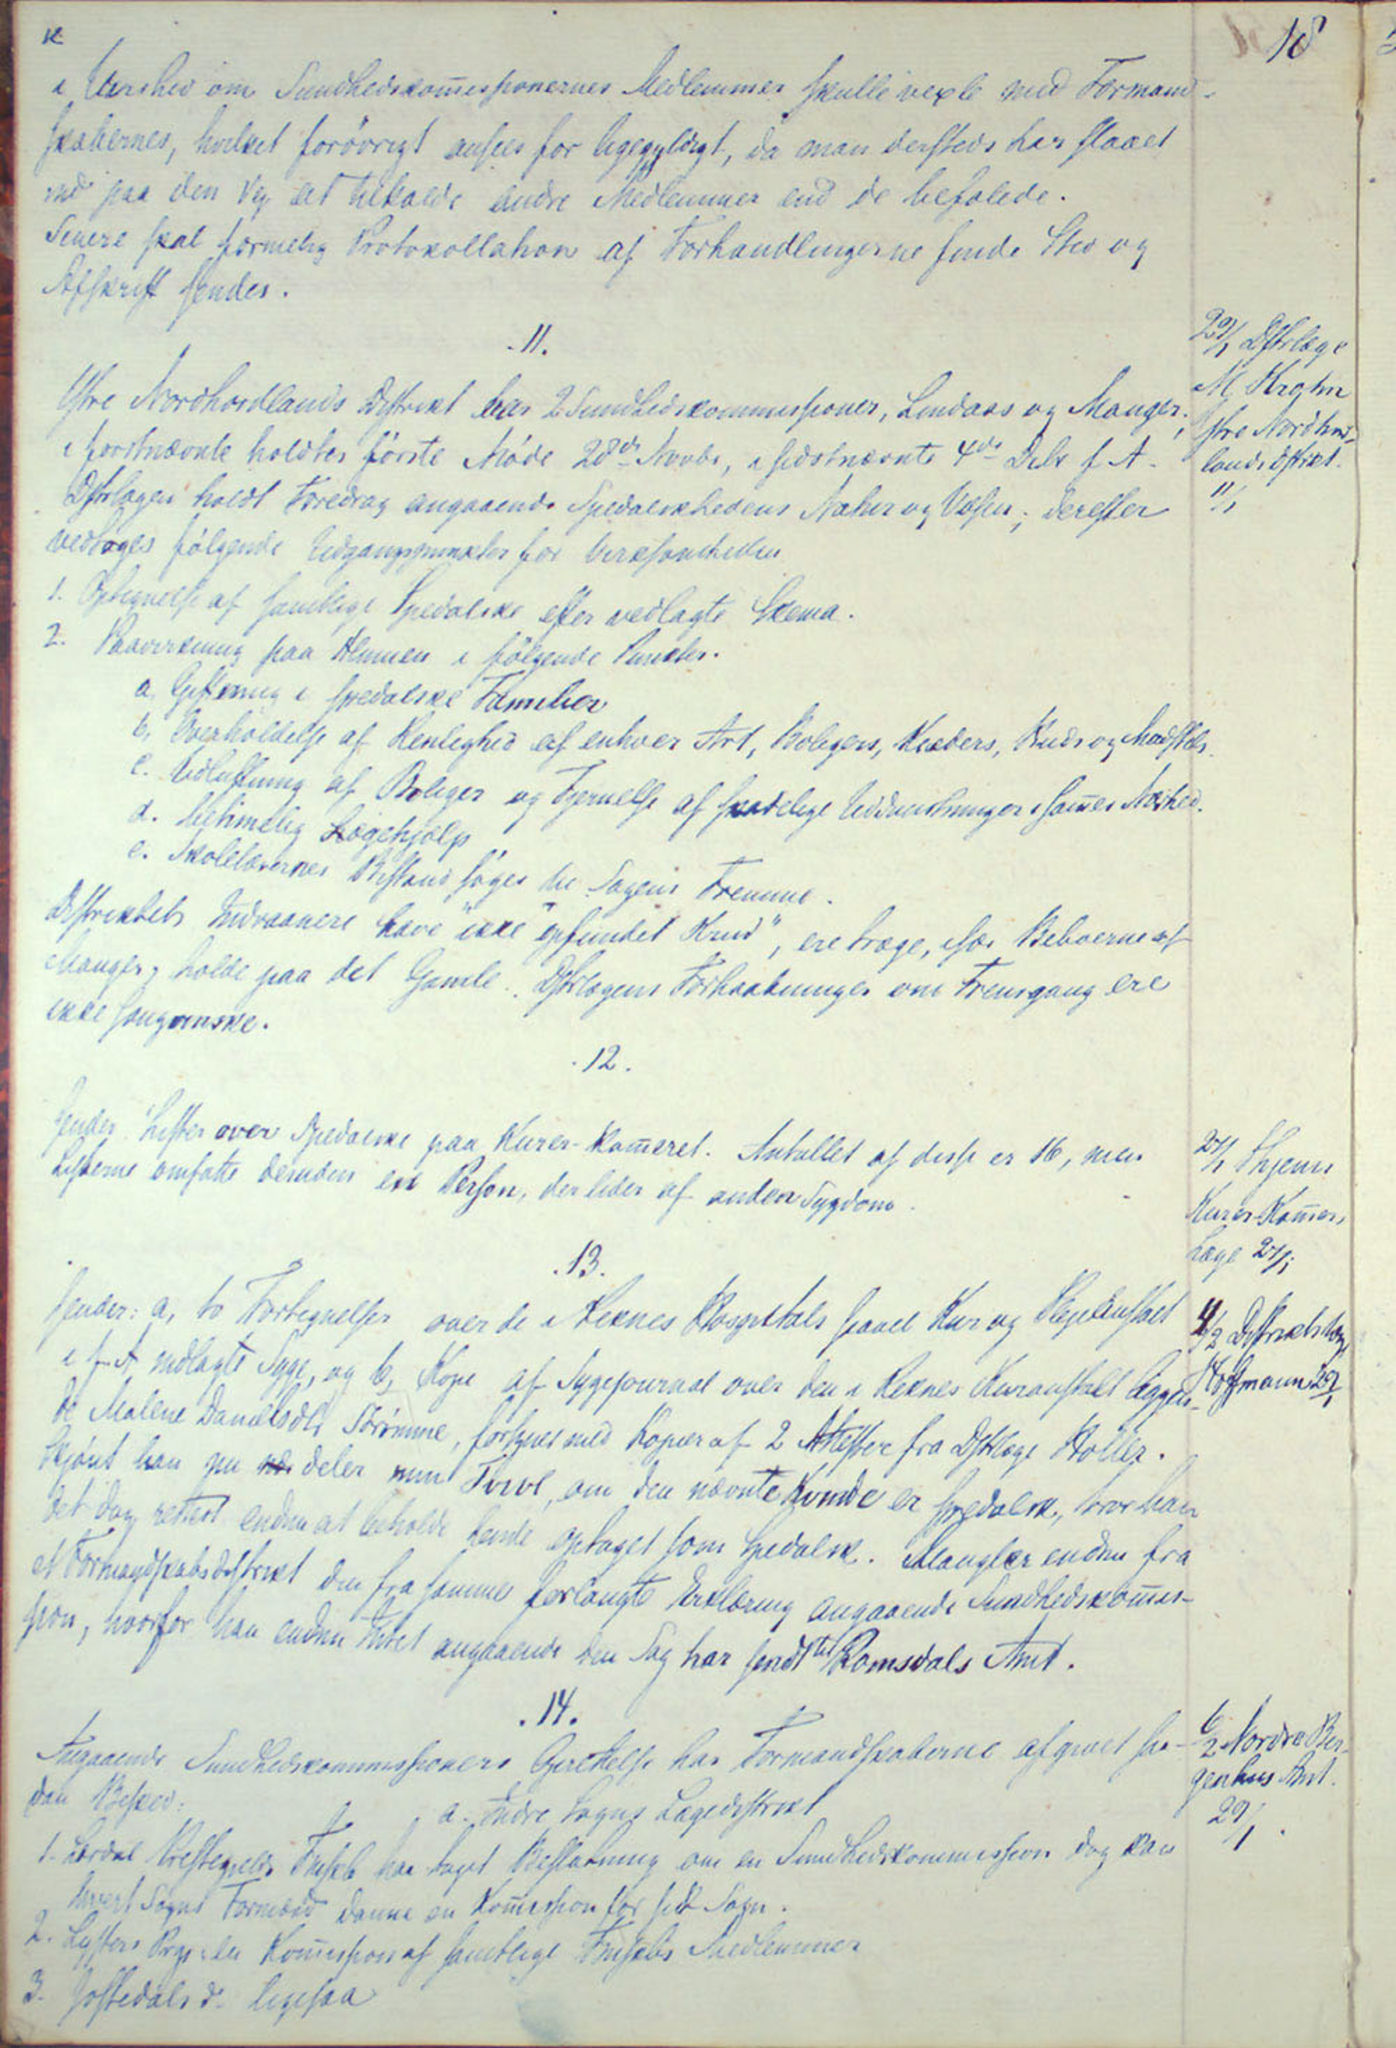 18
i Uvished om Sundhedskommissionernes Medlemmer skulle vexle med Formand-
skabernes, hvilket forövrigt ansees for ligegyldigt, da man dersteds har slaaet
ind paa den Vej at tilkalde andre Medlemmer end de befalede.
Senere skal formelig Protokollation af Forhandlingerne finde Sted og
Afskrift sendes.
.11.
29/1 Dstrlæge
M Krohn
Ytre Nordhord-
lands dstrikt.
11/1
Ytre Nordhordlands Distrikt har 2 Sundhedskommissioner, Lindaas og Manger;
i førstnævnte holdtes første Møde 28de Novbr, i sidstnævnte 4de Decbr f A.
Dstrlægen holdt Foredrag angaaende Spedalskhedens Natur og Væsen; derefter
vedtoges følgende Udgangspunkter for Virksomheden
1. Optegnelse af samtlige Spedalske efter vedlagte Skema.
2. Paavirkning paa Almuen i følgende Punkter.
a, Giftning i spedalske Familier
b, Overholdelse af Renlighed af enhver Art, Boligers, Klæders, Huds og Madstels.
c. Udluftning af Boliger og Fjernelse af skadelige Uddunstninger i sammes Nærhed.
d. betimelig Lægehjælp
e. Skolelærernes Bistand söges til Sagens Fremme.
Distriktets Indvaanere have "ikke opfundet Krud", ere træge, især Beboerne af
Manger, holde paa det Gamle. Dstrlægens Forhaabninger om Fremgang ere
ikke sangvinske.
.12.
27/1 Thjenn
Kurer-Kammer,
Læge 27/1
Sender Lister over Spedalske paa Kurer-Kammeret. Antallet af disse er 16, men
Listerne omfatte desuden en Person, der lider af anden Sygdom.
.13.
4/2 Distriktslæge
Hoffmann 29/1
Sender: a, to Fortegnelser over de i Reknes Hospitals saavel Kur og Plejeanstalt
i f A indlagte Syge, og b, Kopi af Sygejournal over den i Reknes Kuranstalt liggen-
de Malene Danielsdtr Sörimme, forsynet med Kopier af 2 Attester fra Dstrlæge Holler.
Skjønt han nu deler min Tvivl, om den nævnte Kvinde er spedalsk, tror han
det dog rettest endnu at beholde hende optaget som Spedalsk. Mangler endnu fra
et Formandskabsdistrikt den fra samme forlangte Erklæring angaaende Sundhedskommis-
sion, hvorfor han endnu Intet angaaende den Sag har sendt til Romsdals Amt.
.14.
6/2 Nordre Ber-
genhus Amt.
29/1.
Angaaende Sundhedskommissioners Oprettelse har Formandskaberne afgivet saa-
dan Besked:
a. Indre Sogns Lægedistrikt
1. Lærdal Præstegjelds Fmskb har taget Beslutning om en Sundhedskommission dog kan
hvert Sogns Formænd danne en Kommission for sit Sogn.
2. Lysters Prgjeld Kommission af samtlige Fmskbs Medlemmer
3. Jostedals do ligesaa